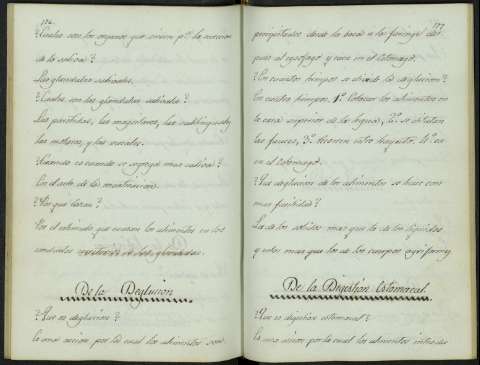 176.
?Cuales son los organos que sirven pª. la secrecion
de la saliva?
Las glandulas salivales.
?Cuales son las glandulas salivales?
Las parotidas, las maxilares, las sublinguales,
las molares, y las vucales.
?Cuando es cuando se segrega mas saliva?
En el acto de la masticacion.
?Por que causa?
Por el estimulo que causan los alimentos en los
conductos de las glandulas.
De la Deglucion
?Que es deglucion?
Es una accion por la cual los alimentos son
177
precipitados desde la boca a la faringe des-
pues al esofago y caen en el estomago.
?En cuantos tiempos se divide la deglucion?
En cuatro tiempos, 1º. Colocar los alimentos en
la cara superior de la lengua, 2º. se
las fauces, 3º. trayecto, 4º. caer
en el Estomago.
?Que deglucion de los alimentos se hace con
mas facilidad?
La de los solidos mas que la de los liquidos
y estos mas que los de los cuerpos
De la Digestion Estomacal.
?Que es digestion estomacal?
Es una accion por la cual los alimentos